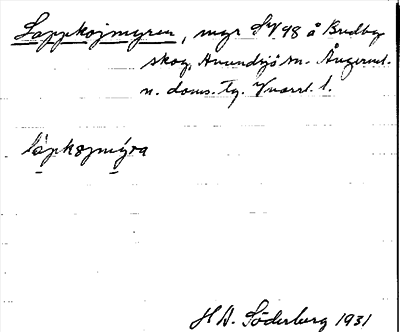 Lappkojmyren, myr SV 98 å Bredbyn
skog, Anundsjö sn. Ångerml.
n. doms. tg. Vnorrl. l.
lápkojmýra
H A. Söderberg 1931